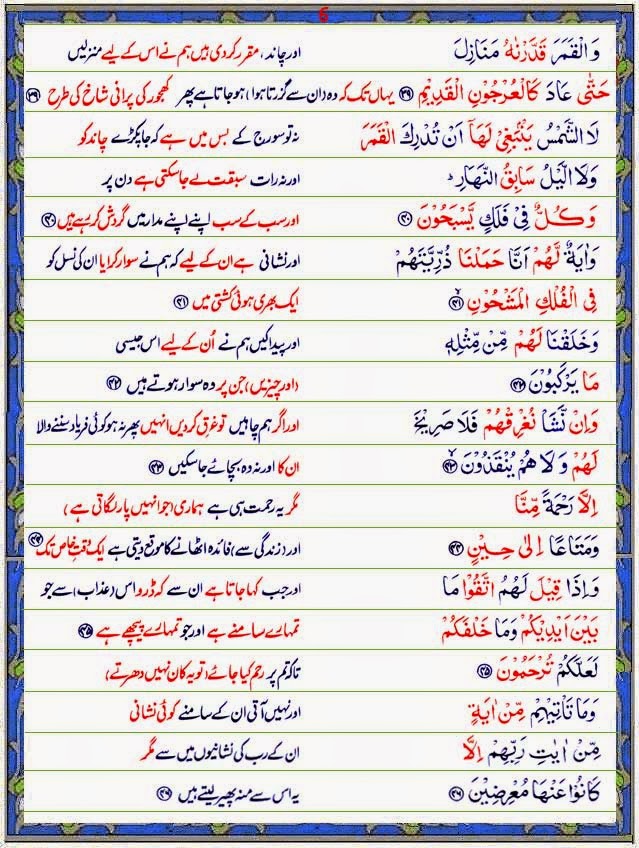 6
وَالْقَمَرَ قَدَّرْنٰهُ مَنَازِلَ اور چاند، مقرر کردی ہیں ہم نے اس کے لیے منزلیں
حَتّٰى عَادَ كَالْعُرْجُوْنِ الْقَدِيْمِ ﴿۳۹﴾ یہاں تک کہ وہ (ان سے گزرتا ہوا) ہو جاتا ہے پھر کھجور کی پرانی شاخ کی طرح ﴿۳۹﴾
لَا الشَّمْسُ يَنْۢبَغِىْ لَهَاۤ اَنْ تُدْرِكَ الْقَمَرَ نہ تو سورج کے بس میں ہے کہ جا پکڑے چاند کو
وَلَا الَّيْلُ سَابِقُ النَّهَارِ ؕ اور نہ رات سبقت لے جا سکتی ہے دن پر
وَكُلٌّ فِىْ فَلَكٍ يَّسْبَحُوْنَ ﴿۴۰﴾ اور سب کے سب اپنے اپنے مدار میں گردش کر رہے ہیں ﴿۴۰﴾
وَاٰيَةٌ لَّهُمْ اَنَّا حَمَلْنَا ذُرِّيَّتَهُمْ اور نشانی ہے ان کے لیے کہ ہم نے سوار کرایا ان کی نسل کو
فِى الْفُلْكِ الْمَشْحُوْنِ ﴿۴۱﴾ ایک بھری ہوئی کشتی میں ﴿۴۱﴾
وَخَلَقْنَا لَهُمْ مِّنْ مِّثْلِهٖ اور پیدا کیں ہم نے اُن کے لیے اس جیسی
مَا يَرْكَبُوْنَ ﴿۴۲﴾ (اور چیزیں) جن پر وہ سوار ہوتے ہیں ﴿۴۲﴾
وَاِنْ نَّشَاْ نُغْرِقْهُمْ فَلَا صَرِيْخَ اور اگر ہم چاہیں تو غرق کردیں انہیں پھر نہ ہو کوئی فریاد سننے والا
لَهُمْ وَلَا هُمْ يُنْقَذُوْنَ ﴿۴۳﴾ ان کا اور نہ وہ بچائے جا سکیں ﴿۴۳﴾
اِلَّا رَحْمَةً مِّنَّا مگر یہ رحمت ہی ہے ہماری (جو انہیں پار لگاتی ہے)
وَمَتَاعًا اِلٰى حِيْنٍ ﴿۴۴﴾ اور (زندگی سے) فائدہ اٹھانے کا موقع دیتی ہے ایک وقتِ خاص تک ﴿۴۴﴾
وَاِذَا قِيْلَ لَهُمُ اتَّقُوْا مَا اور جب کہا جاتا ہے ان سے کہ ڈرو اس (عذاب) سے جو
بَيْنَ اَيْدِيْكُمْ وَمَا خَلْفَكُمْ تمہارے سامنے ہے اور جو تمہارے پیچھے ہے ﴿۴۵﴾
لَعَلَّكُمْ تُرْحَمُوْنَ ﴿۴۵﴾ تاکہ تم پر رحم کیا جائے (تو یہ کان نہیں دھرتے)
وَمَا تَاْتِيْهِمْ مِّنْ اٰيَةٍ اور نہیں آتی ان کے سامنے کوئی نشانی
مِّنْ اٰيٰتِ رَبِّهِمْ اِلَّا ان کے رب کی نشانیوں میں سے مگر
كَانُوْا عَنْهَا مُعْرِضِيْنَ ﴿۴۶﴾ یہ اس سے منہ پھیر لیتے ہیں ﴿۴۶﴾